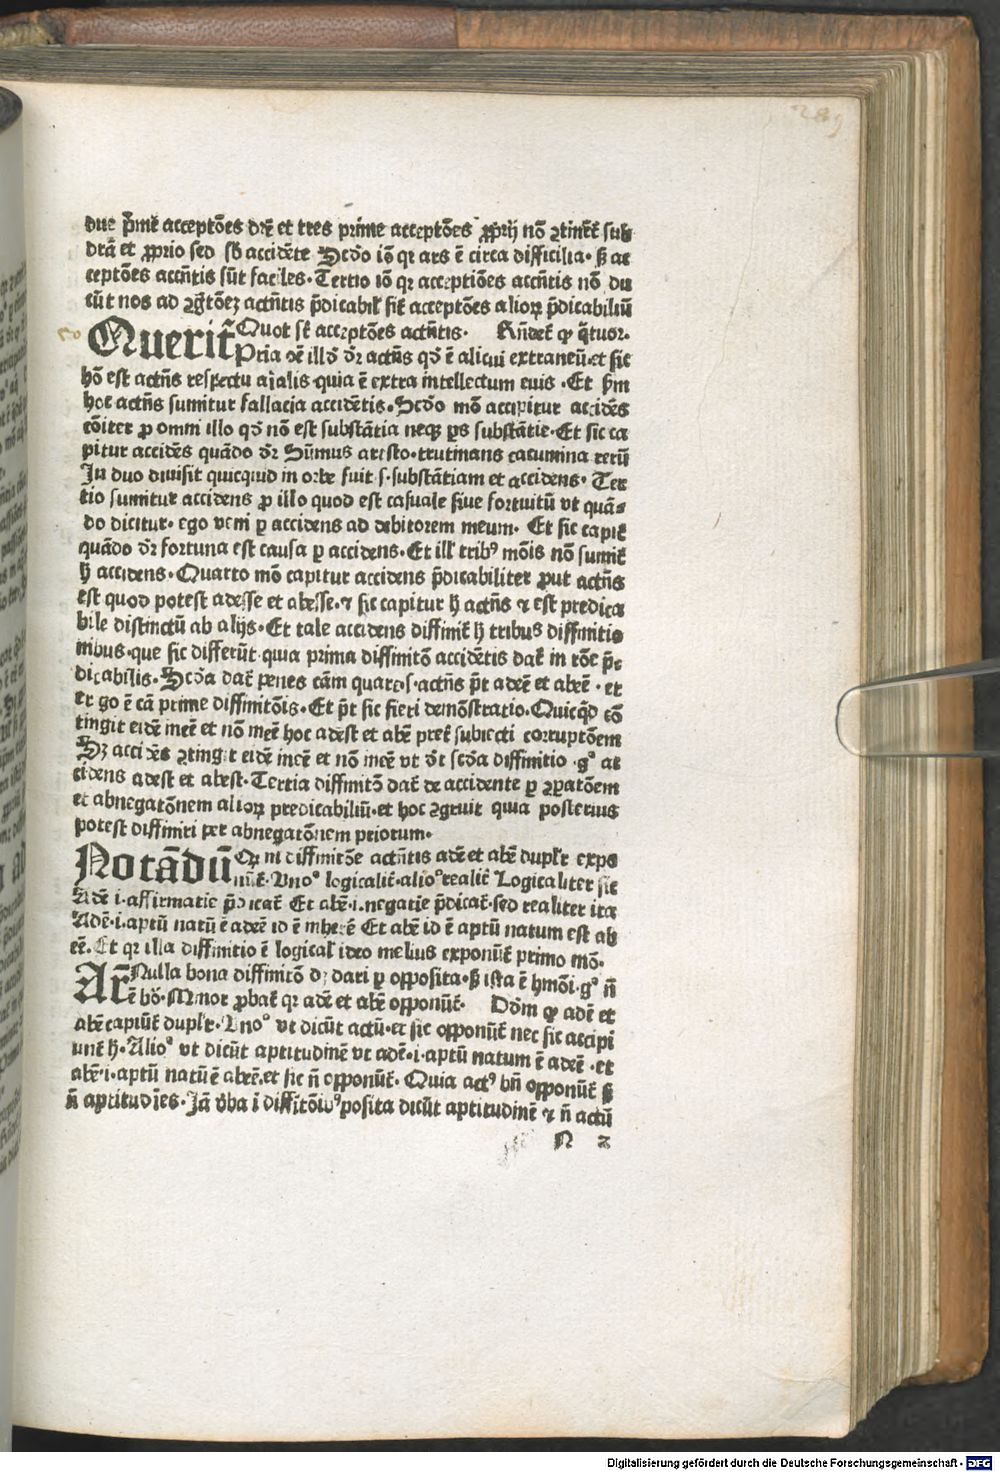 289
due p̄mē acceptōes drē et tres prime acceptōes ꝓprij nō ꝯtinēt̄ sub
drā et ꝓprio sed sb̄ accidēte Scd̓o iō qr ars ē circa difficilia· ß ac
ceptōes accn̄tis sūt faciles· Tertio iō qr acceptiōes accn̄tis nō du
cūt nos ad acn̄tis p̄dicabil̓ sic̄ acceptōes alioꝝ p̄dicabiliū
Querit̄ Quot st̄ acceptōes actn̄tis· Rn̄det̄ ꝙ q̄tuor·
Pria illd̓ dr̄ actn̄s qd̓ ē alicui extraneū·et sic
hō est actn̄s respectu aīalis·quia ē extra intellectum euis ·Et ẜm
hoc actn̄s sumitur fallacia accidētis·Scd̓o mō accipitur accidēs
cōiter ꝓ omni illo qd̓ nō est substātia neqꝫ ps substātie·Et sic ca
pitur accidēs quādo dr̄ Sūmus aristo·trutinans cacumina rerū
In duo diuisit quicquid in orbe fuit s·substātiam et accidens· Ter
tio sumitur accidens ꝓ illo quod est casuale siue fortuitū vt quā⸗
do dicitur· ego veni ꝑ accidens ad debitorem meum· Et sic capit̄
quādo dr̄ fortuna est causa ꝑ accidens·Et ill̓ tribꝰ mōis nō sumit̄
h̄ accidens·Quarto mō capitur accidens p̄dicabiliter ꝓut actn̄s
est quod potest adesse et abesse·⁊ sic capitur h̄ actn̄s ⁊ est predica
bile distinctū ab alijs·Et tale accidens diffinit̄ h̄ tribus diffinitio
nibus·que sic differūt·quia prima diffinitō accidētis dat̄ in rōe p̄
dicabilis·Scd̓a dat̄ penes cām quare s·actn̄s pt̄ adeē et abeē · et
er go ē cā prime diffinitōis·Et pt̄ sic fieri demōstratio·Quicqd̓ cō
tingit eidē inee et nō inee hoc adest et abē pret̄ subiecti corruptōem
Sꝫ accidēs ꝯtingit eidē ineē et nō inee vt dt̄ scd̓a diffinitio ·gͦ ac
cidens adest et abest·Tertia diffinitō dat̄ de accidente ꝑ ꝯꝑatōem
et abnegatōnem alioꝝ predicabiliū·et hoc ꝯgruit quia posterius
potest diffiniri per abnegatōnem priorum·
Notādū Qr in diffinitōe actn̄tis adē et abē dupl̓r expo
nūt̄· Vnoͦ logicalit̄·alioͦ realit̄ Logicaliter sic
Adē ·i·affirmatie p̄dicat̄ Et abē·i·negatie p̄dicat̄·sed realiter ita
Adē·i·aptū natū ē adeē id ē inherē Et abē id ē aptū natum est ab
eē·Et qr illa diffinitio ē logical̓ ideo melius exponit̄ primo mō·
Ar̄ Nulla bona diffinitō dꝫ dari ꝑ opposita·ß ista ē hmōi·gͦ n̄
ē bō·Minor ꝓbat̄ qr adē et abē opponūt̄· Dōm ꝙ adē et
abē capiūt̄ dupl̓r·Vnoͦ vt dicūt actū·et sic opponūt̄ nec sic accipi
unt̄ h̄·Alioͦ vt dicūt aptitudinē vt adē·i·aptū natum ē adeē ·et
abē·i·aptū natū ē abeē·et sic n̄ opponūt̄· Quia actꝰ bn̄ opponūt̄ ß
n̄ aptitudīes·Iā v̓ba ī diffitōibꝰ posita dicūt aptitudinē ⁊ n̄ actū
N 2
Digitalisierung gefördert durch die Deutsche Forschungsgemeinschaft - DFG